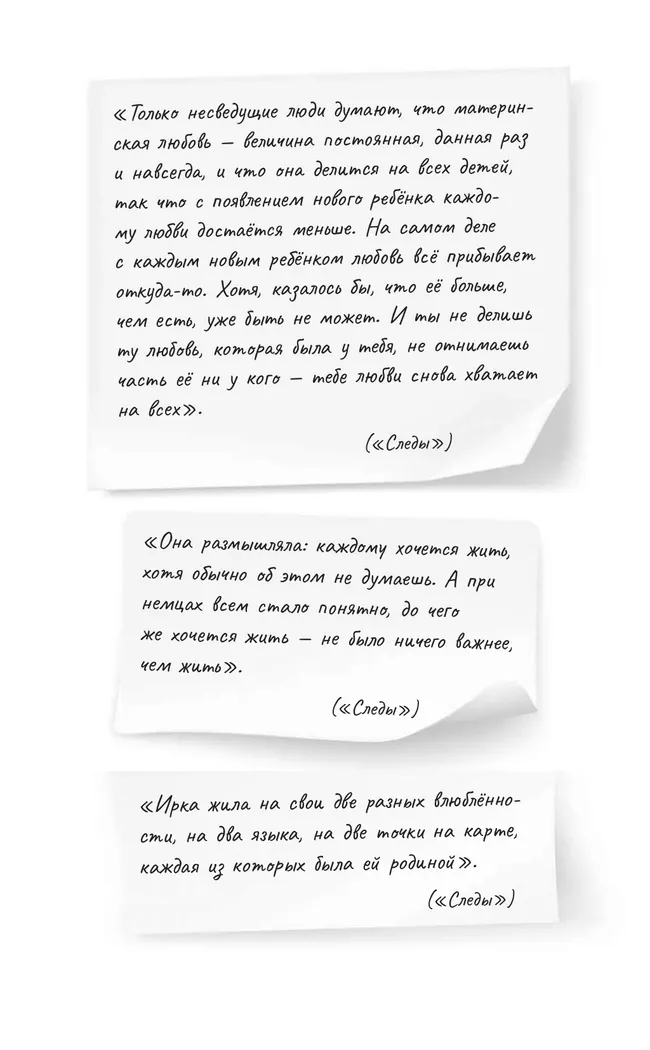 «Только несведущие люди думают, что материн-
ская любовь — величина постоянная, данная раз
и навсегда, и что она делится на всех детей,
так что с появлением нового ребёнка каждо-
му любви достаётся меньше. На самом деле
с каждым новым ребёнком любовь всё прибывает
откуда-то. Хотя, казалось бы, что её больше,
чем есть, уже быть не может. И ты не делишь
ту любовь, которая была у тебя, не отнимаешь
часть её ни у кого — тебе любви снова хватает
на всех».
(«Следы»)
«Она размышляла: каждому хочется жить,
хотя обычно об этом не думаешь. А при
немцах всем стало понятно, до чего
же хочется жить — не было ничего важнее,
чем жить».
(«Следы»)
«Ирка жила на свои две разных влюблённо-
сти, на два языка, на две точки на карте,
каждая из которых была ей родиной».
(«Следы»)